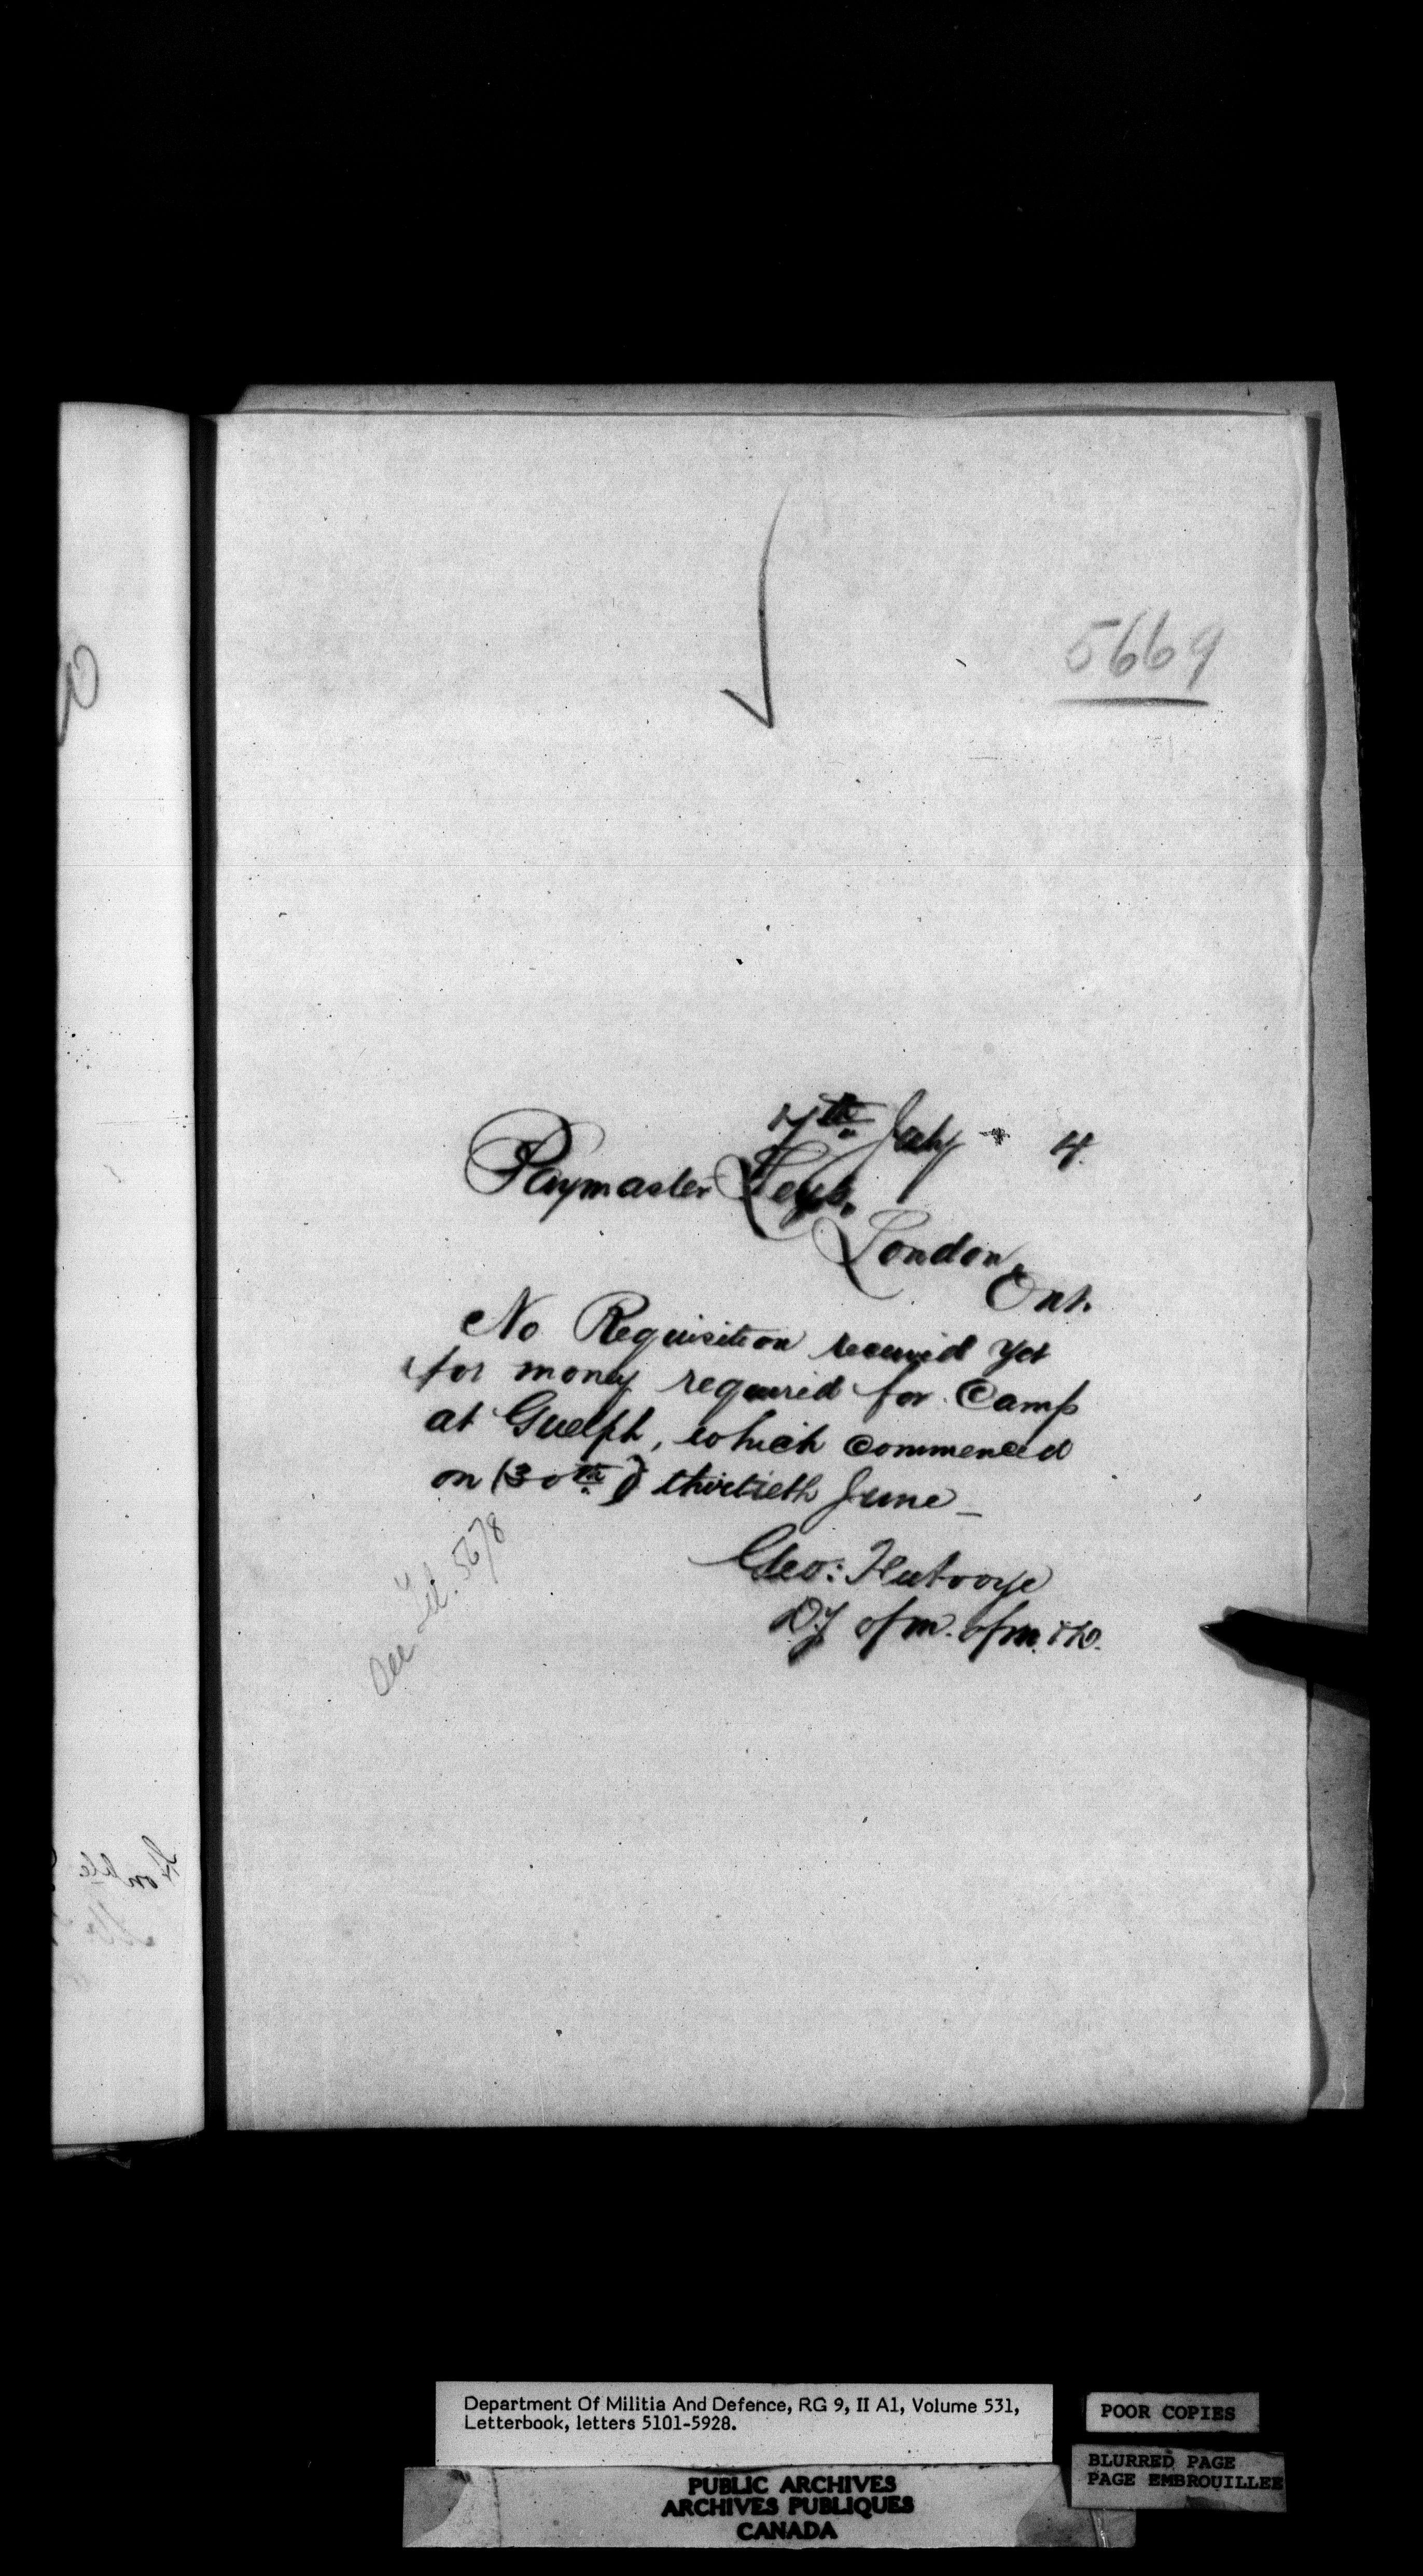 5669
17th July 4.
Paymaster Leys,
London,
Ont.
No Requisition received yet
for money required for Camp
at Guelph, which commenced
on (30th) thirtieth June _
Geo: Futvoye
D.y of m. of m. & D.
See Tel. 5678
Honble
Department Of Militia And Defence, RG 9, II A1, Volume 531,
Letterbook, letters 5101-5928.
POOR COPIES
BLURRED PAGE
PAGE EMBROUILLEE
PUBLIC ARCHIVES
ARCHIVES PUBLIQUES
CANADA